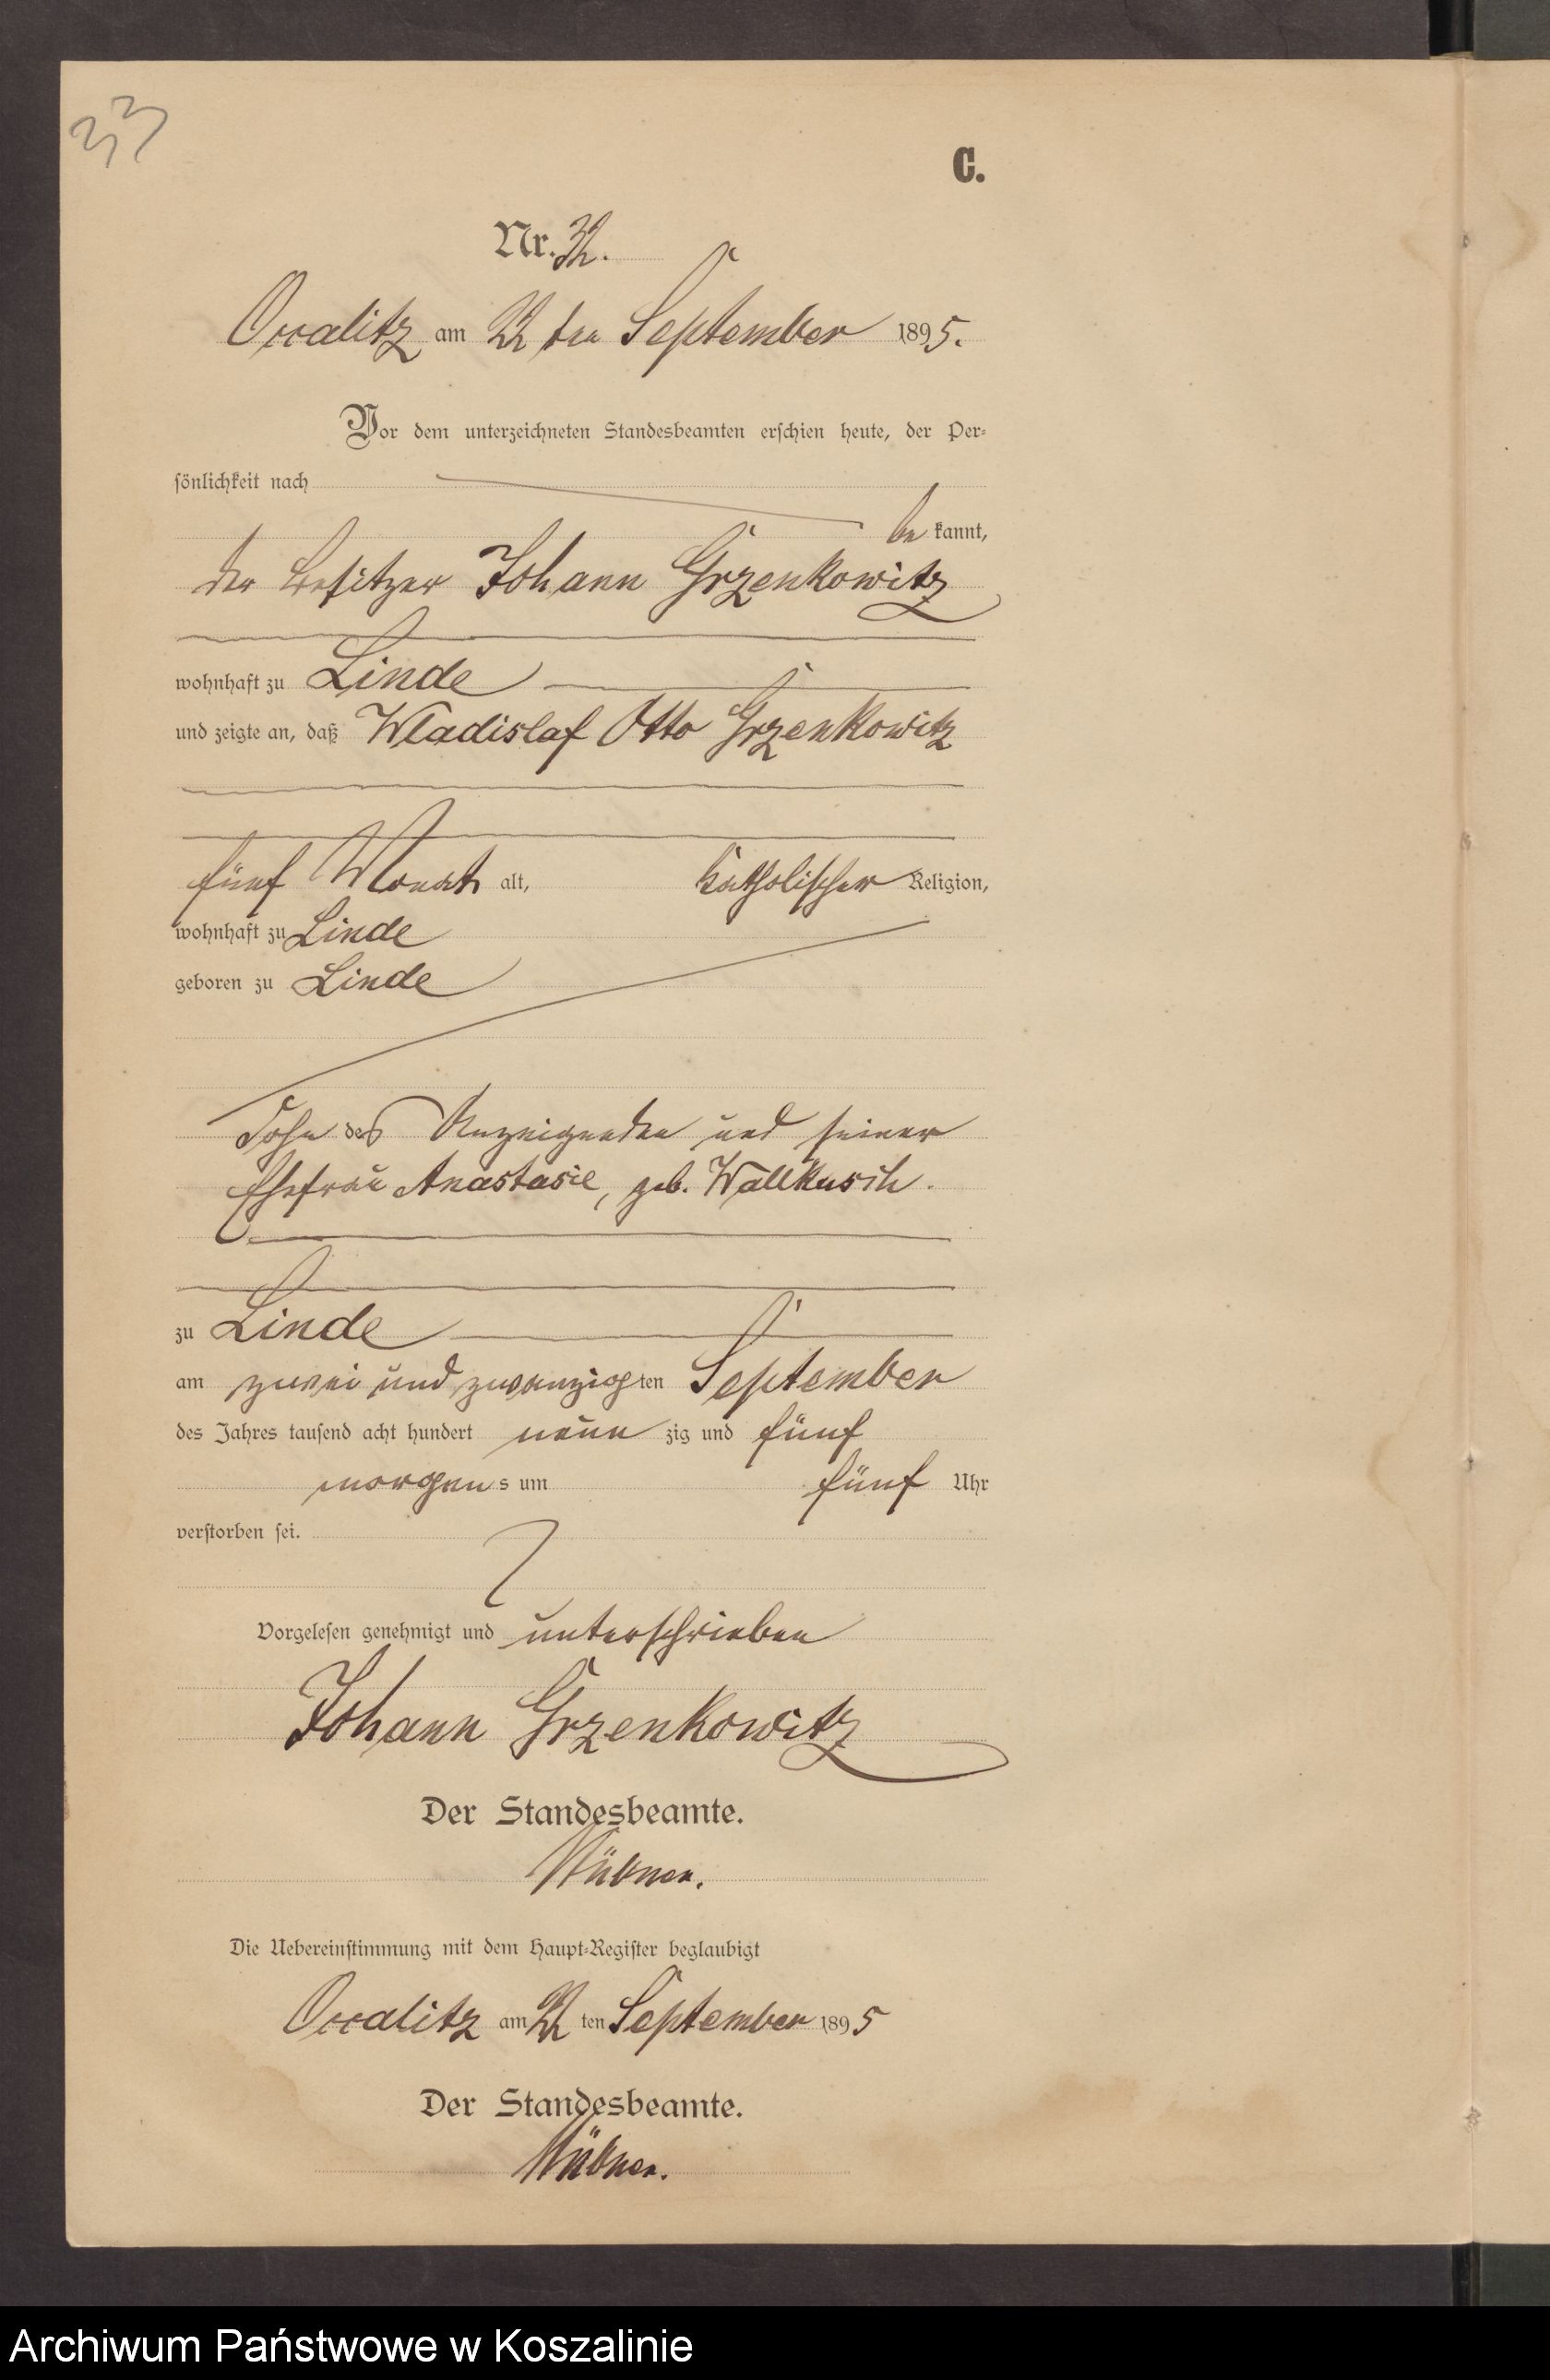 33
C.
Nr. 32.
Occalitz am 22 ten September 1895.
Vor dem unterzeichneten Standesbeamten erschien heute, der Per-
sönlichkeit nach
be kannt,
der Besitzer Johann Grzenkowitz
wohnhaft zu Linde
und zeigte an, daß Wladislaf Otto Grzenkowitz
fünf Monat alt, katholischer Religion,
wohnhaft zu Linde
geboren zu Linde
Sohn des Anzeigenden und seiner
Ehefrau Anastasie, geb. Wallkusch.
zu Linde
am zwei und zwanzigten September
des Jahres tausend acht hundert neun zig und fünf
morgens um fünf Uhr
verstorben sei.
Vorgelesen genehmigt und unterschrieben
Johann Grzenkowitz
Der Standesbeamte.
Die Uebereinstimmung mit dem Haupt-Register beglaubigt
Occalitz am 22 ten September 1895
Der Standesbeamte.
Archiwum Państwowe w Koszalinie